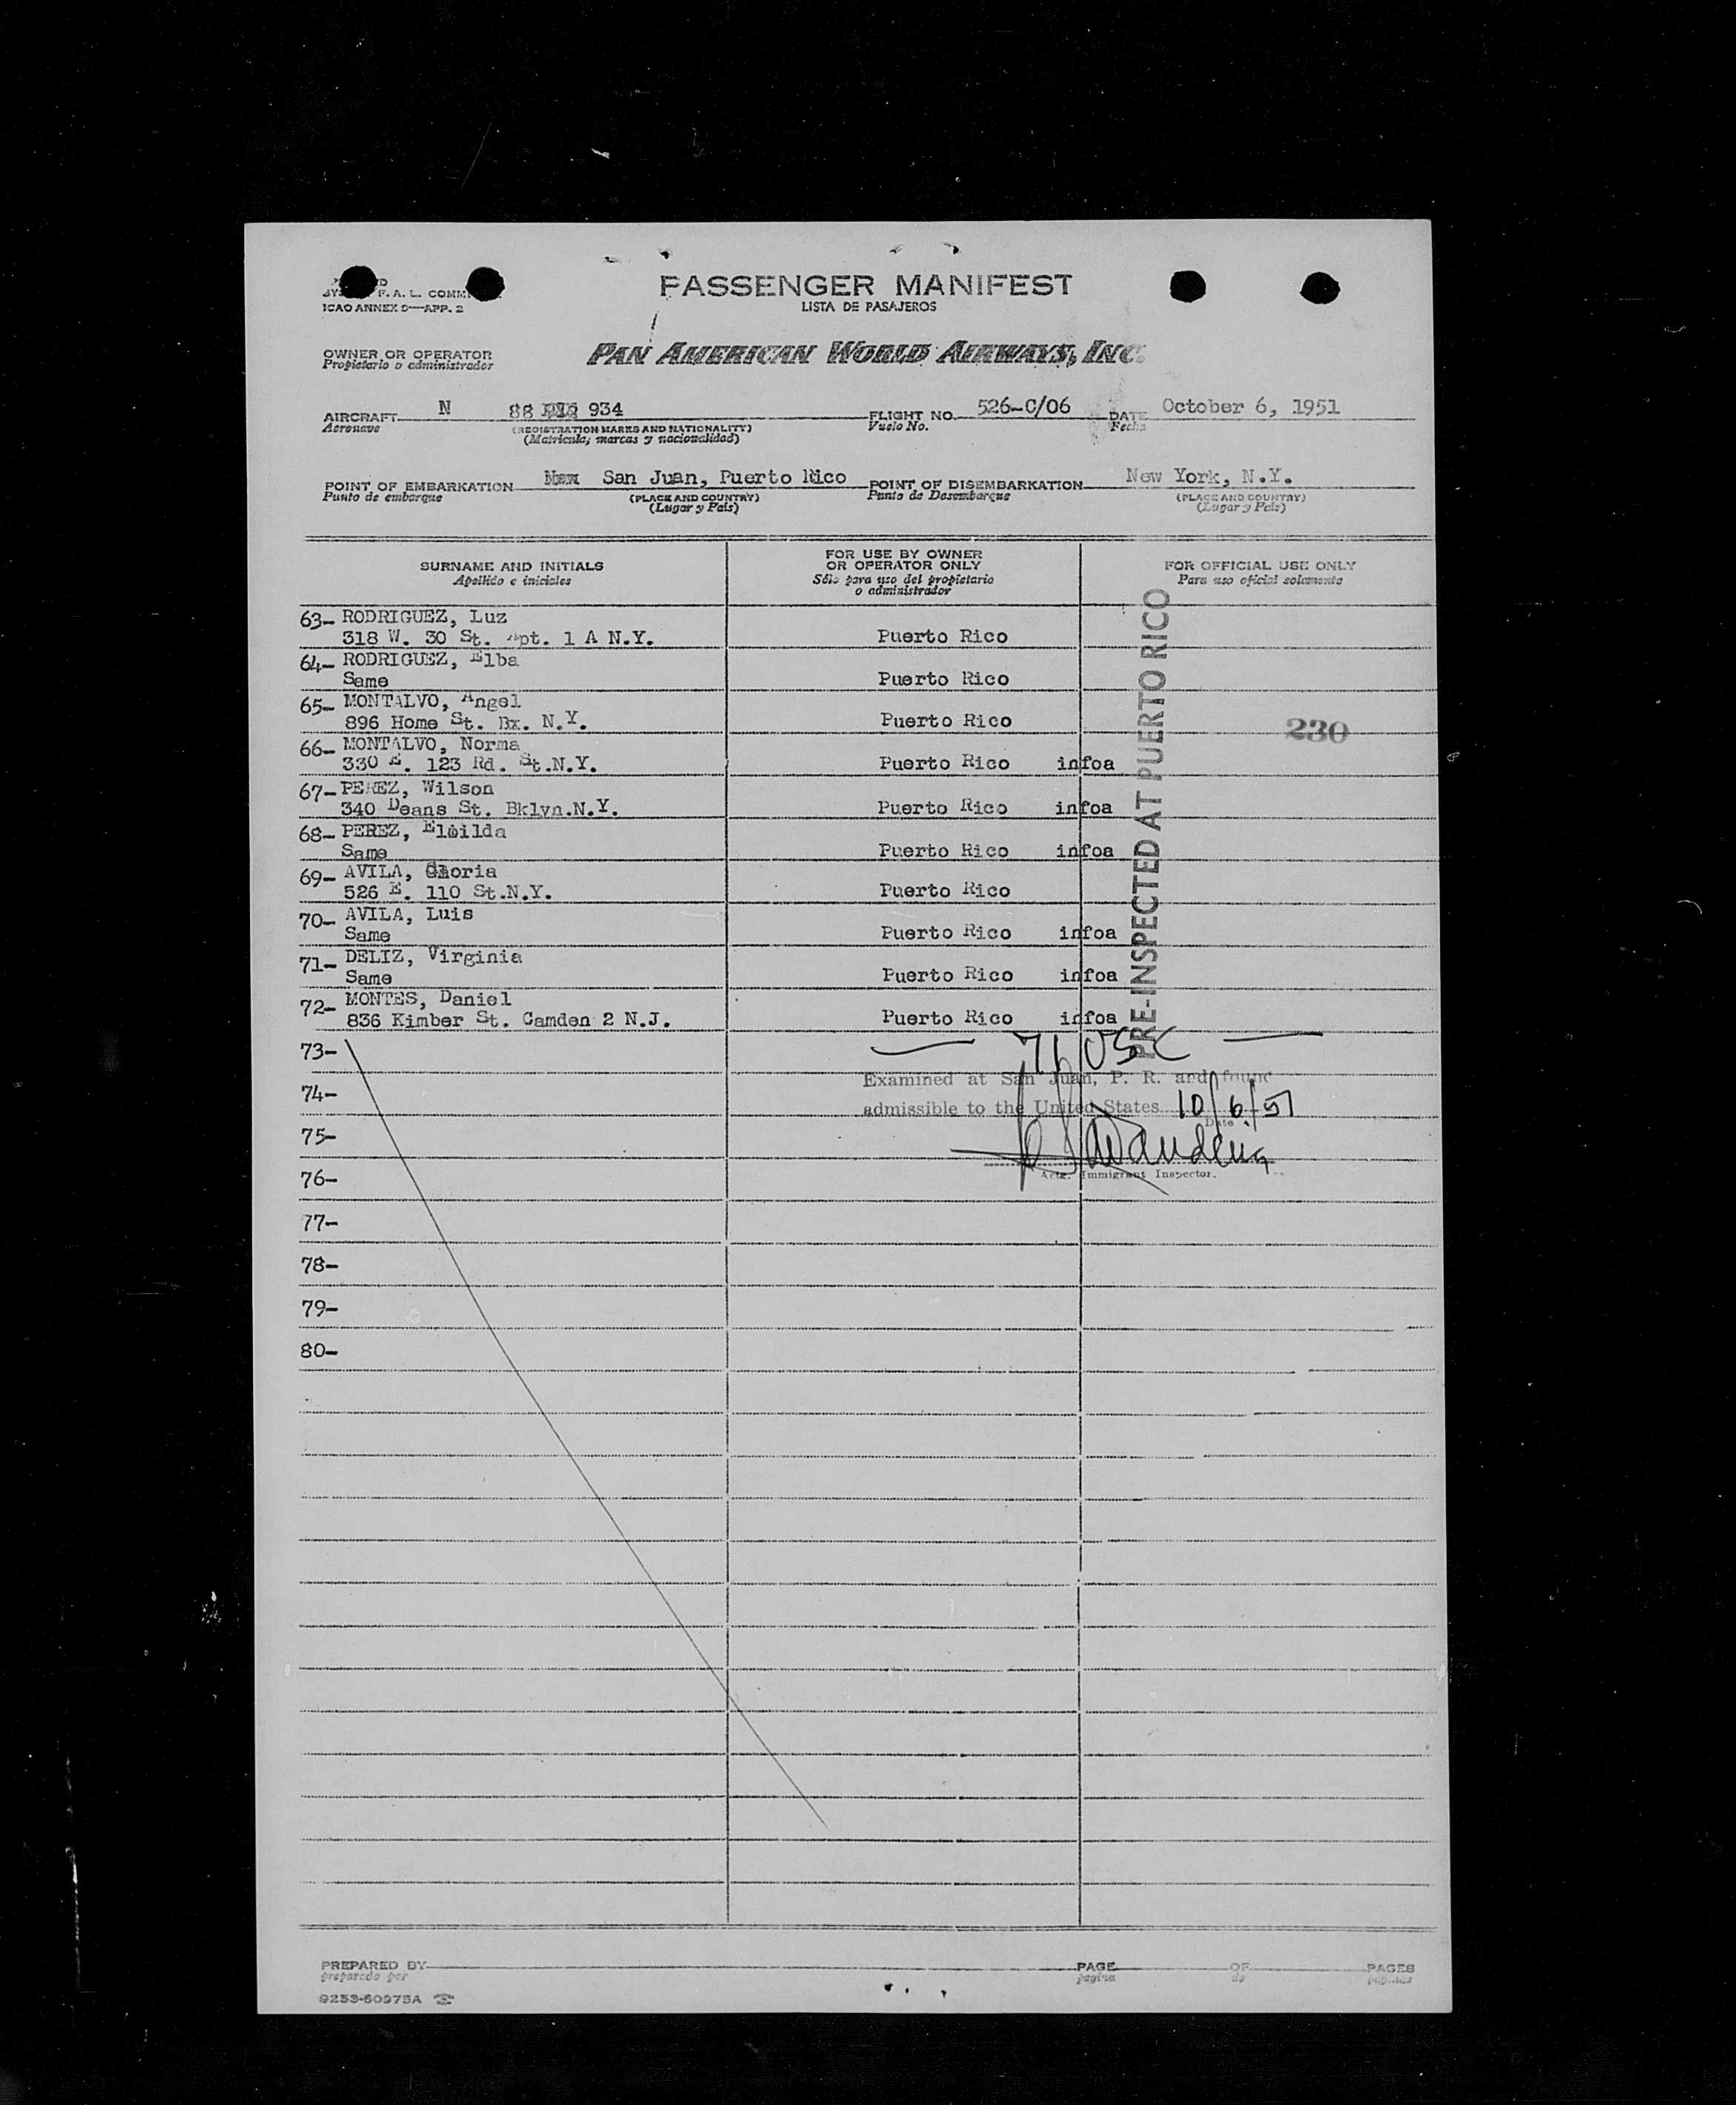 F. A. L. COMM
ICAO ANNEX 9—APP. 2
PASSENGER MANIFEST
LISTA DE PASAJEROS
OWNER OR OPERATOR
Propietario o administrador
PAN AMERICAN WORLD AIRWAYS, INC.
AIRCRAFT N 88 934 FLIGHT NO. 526-C/06 DATE October 6, 1951
Aeronave (REGISTRATION MARKS AND NATIONALITY) Vuelo No. Fecha
(Matricula, marcas y nacionalidad)
POINT OF EMBARKATION San Juan, Puerto Rico POINT OF DISEMBARKATION New York, N.Y.
Punto de embarque (PLACE AND COUNTRY) Punto de Desembarque (PLACE AND COUNTRY)
(Lugar y País) (Lugar y País)
SURNAME AND INITIALS
Apellido e iniciales
FOR USE BY OWNER
OR OPERATOR ONLY
Sólo para uso del propietario
o administrador
FOR OFFICIAL USE ONLY
Para uso oficial solamente
63- RODRIGUEZ, Luz
318 W. 30 St. Apt. 1 A N.Y. Puerto Rico
64- RODRIGUEZ, Elba
Same Puerto Rico
65- MONTALVO, Angel
896 Home St. Bx. N.Y. Puerto Rico
230
66- MONTALVO, Norma
330 E. 123 Rd. St.N.Y. Puerto Rico infoa
67- PEREZ, Wilson
340 Deans St. Bklyn.N.Y. Puerto Rico infoa
68- PEREZ, Elbilda
Same Puerto Rico infoa
69- AVILA, Gloria
526 E. 110 St.N.Y. Puerto Rico
70- AVILA, Luis
Same Puerto Rico infoa
71- DELIZ, Virginia
Same Puerto Rico infoa
72- MONTES, Daniel
836 Kimber St. Camden 2 N.J. Puerto Rico infoa
PRE-INSPECTED AT PUERTO RICO
73-
71 USC
Examined at San Juan, P. R. and found
74-
admissible to the United States 10/6/51
Date
75-
Actg. Immigrant Inspector.
76-
77-
78-
79-
80-
PREPARED BY PAGE OF PAGES
preparado por pagina de paginas
9253-60975A